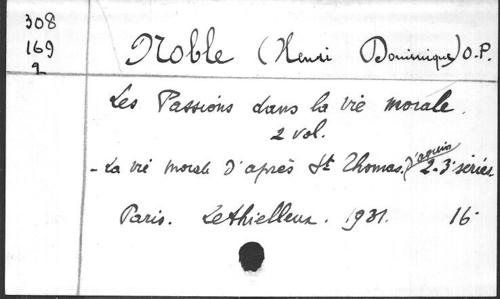 308
169
2
Noble (Henri Dominique) O.P.
Les Passions dans la vie morale.
2 vol.
- La vie morale d'après St Thomas. d'aquin 2-3e séries
Paris. Lethielleux. 1931. 16°